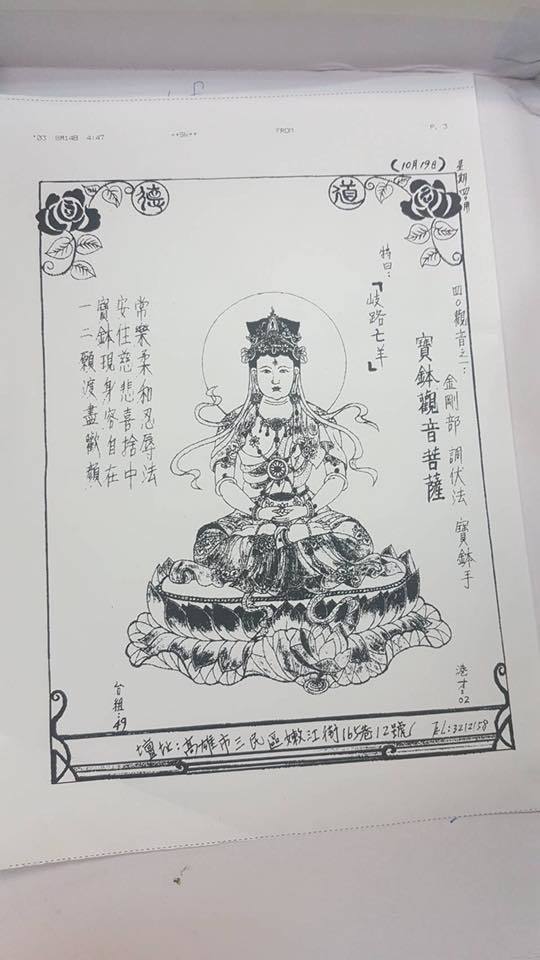 4:47 FROM P. 3
(10月19日)
星期四用
德 道
四0觀音之一:
金剛部 調伏法 寶鉢手
寶鉢觀音菩薩
特曰:
「岐路亡羊」
常樂柔和忍辱法
安住慈悲喜捨中
寶鉢現身容自在
一二願渡盡歡顏
台組:49
02
壇址:高雄市三民區嫩江街165巷12號 TEL:3212158